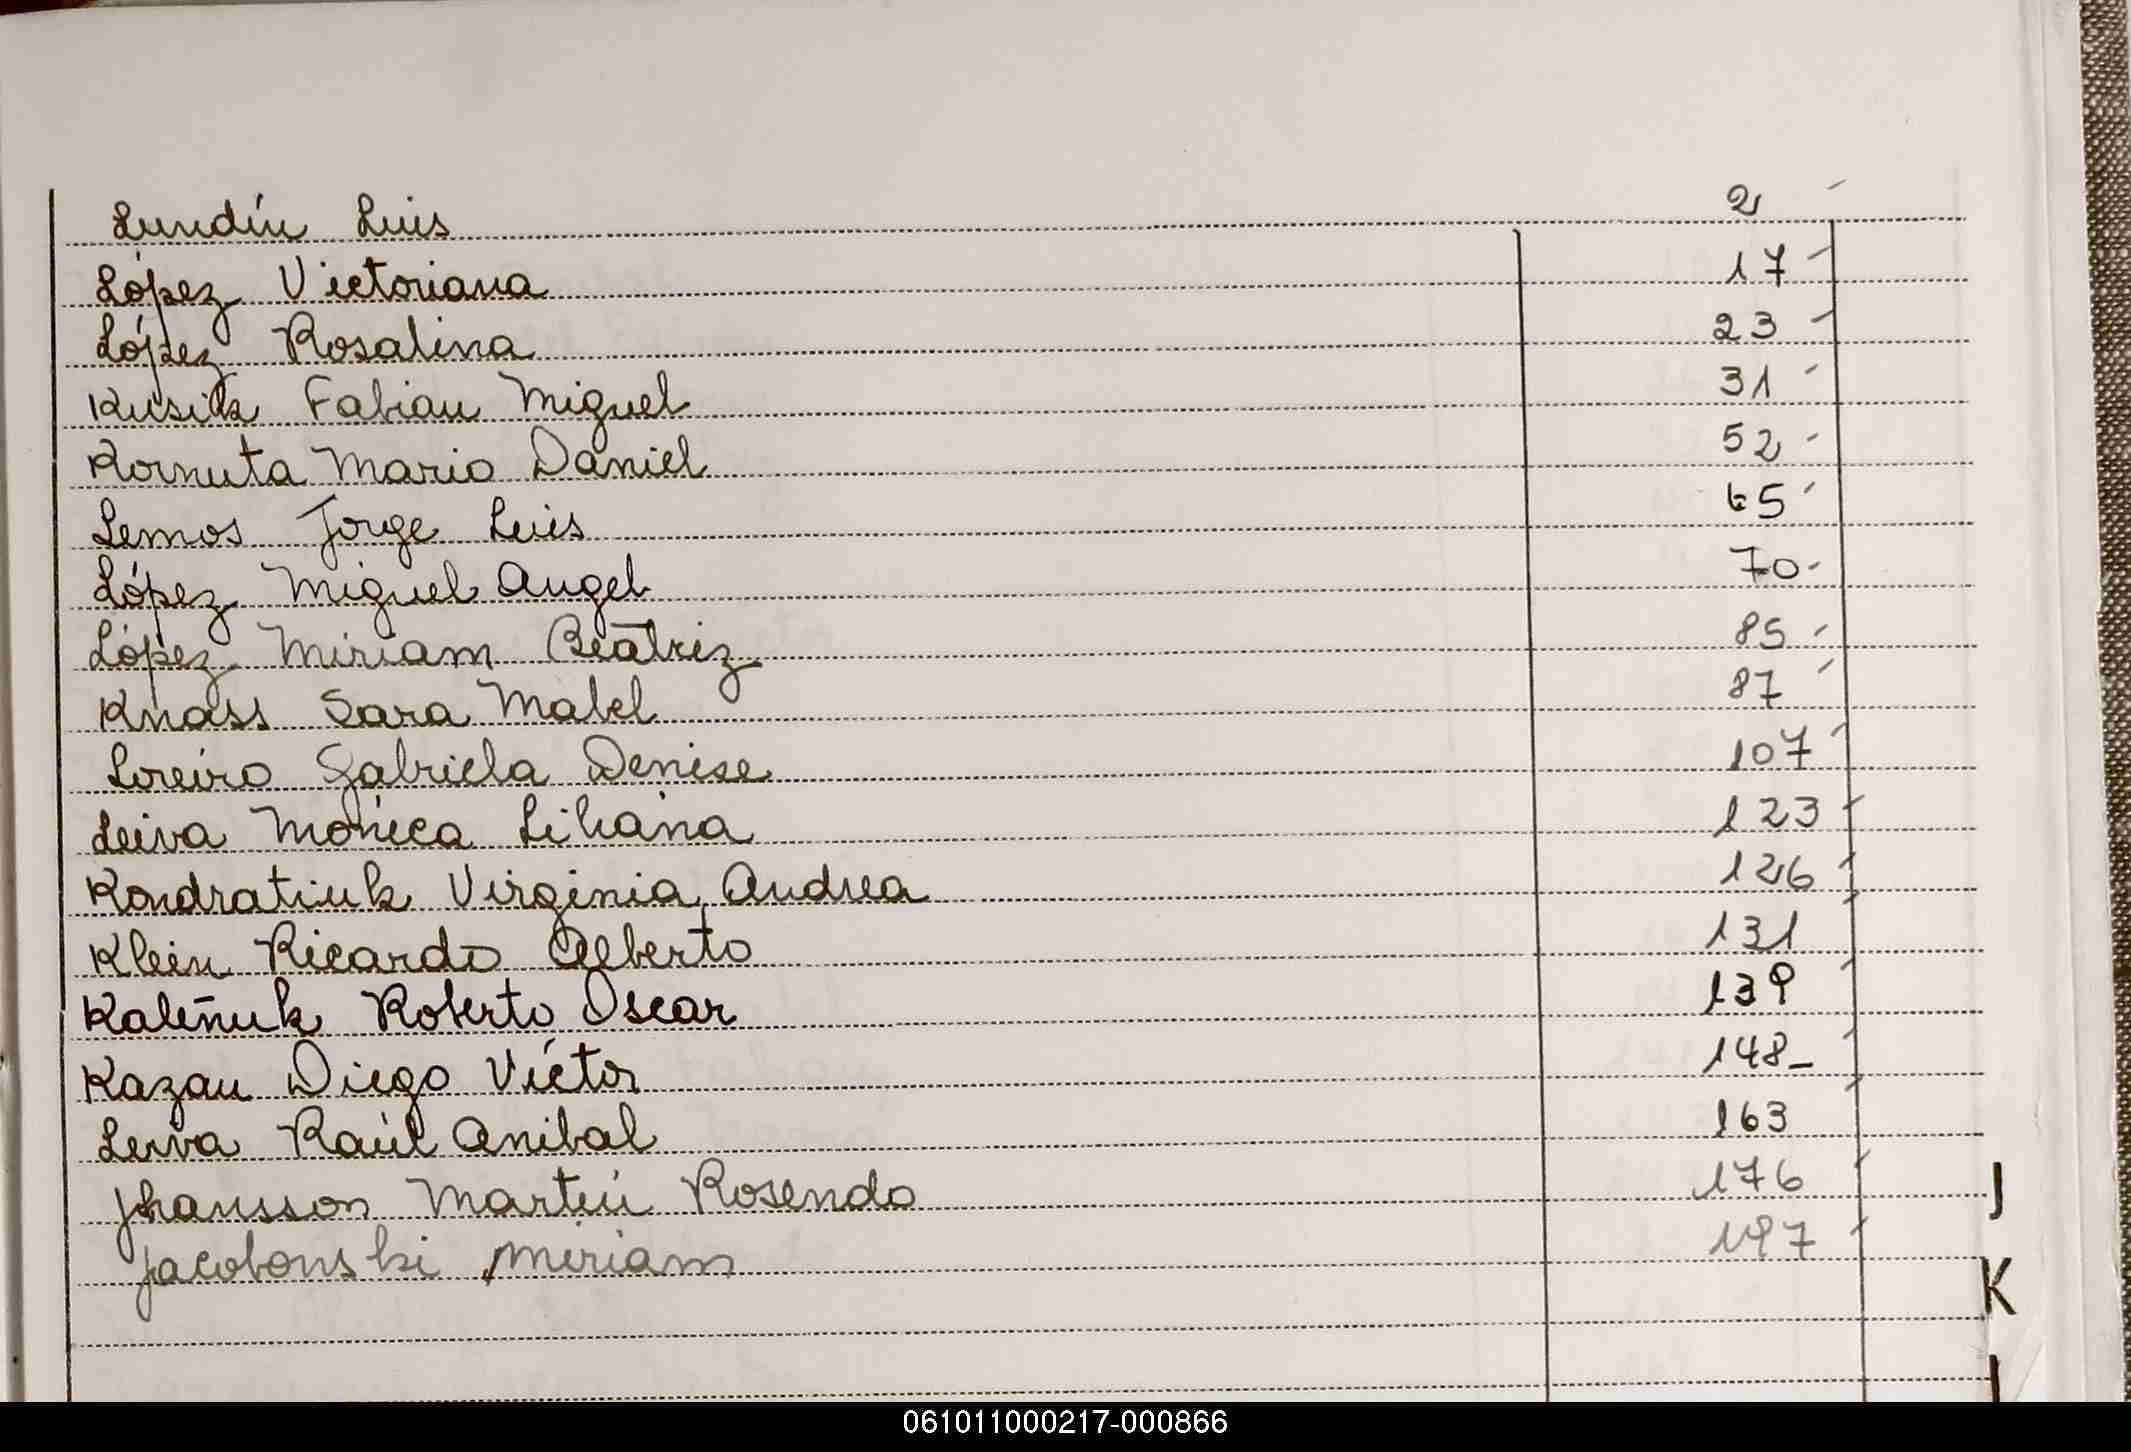 Lundín Luis 2
López Victoriana 17
López Rosalina 23
Kusik Fabian Miguel 31
Kornuta Mario Daniel 52
Lemos Jorge Luis 65
López Miguel Angel 70
López Miriam Beatriz 85
Knass Sara Mabel 87
Loreiro Gabriela Denise 107
Leiva Mónica Liliana 123
Kondratiuk Virginia Andrea 126
Klein Ricardo Alberto 131
Kaleñuk Roberto Oscar 139
Kazau Diego Víctor 148
Leiva Raúl Anibal 163
Jhansson Martín Rosendo 176
Jacobonski Miriam 197
J
K
061011000217-000866